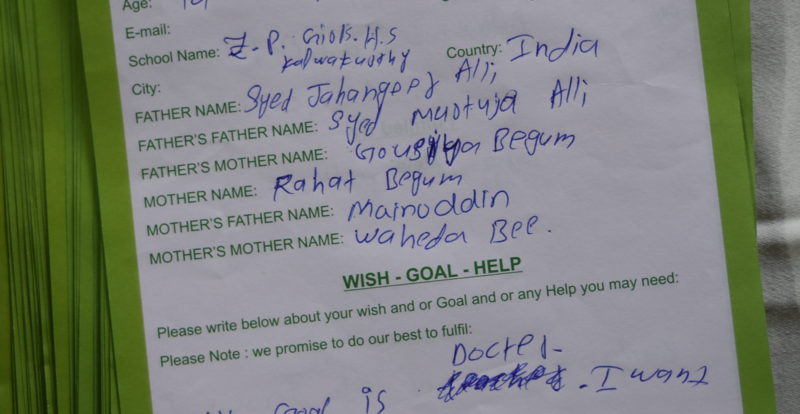 Age:
E-mail:
School Name: Z.P. Girls. H.S Country: India
Kalwakurthy
City:
FATHER NAME: Syed Jahangeer Alli
FATHER'S FATHER NAME: Syed Murtuja Alli
FATHER'S MOTHER NAME: Gousiya Begum
MOTHER NAME: Rahat Begum
MOTHER'S FATHER NAME: Mainoddin
MOTHER'S MOTHER NAME: Waheda Bee.
WISH - GOAL - HELP
Please write below about your wish and or Goal and or any Help you may need:
Please Note : we promise to do our best to fulfil:
Docter
goal is . I want